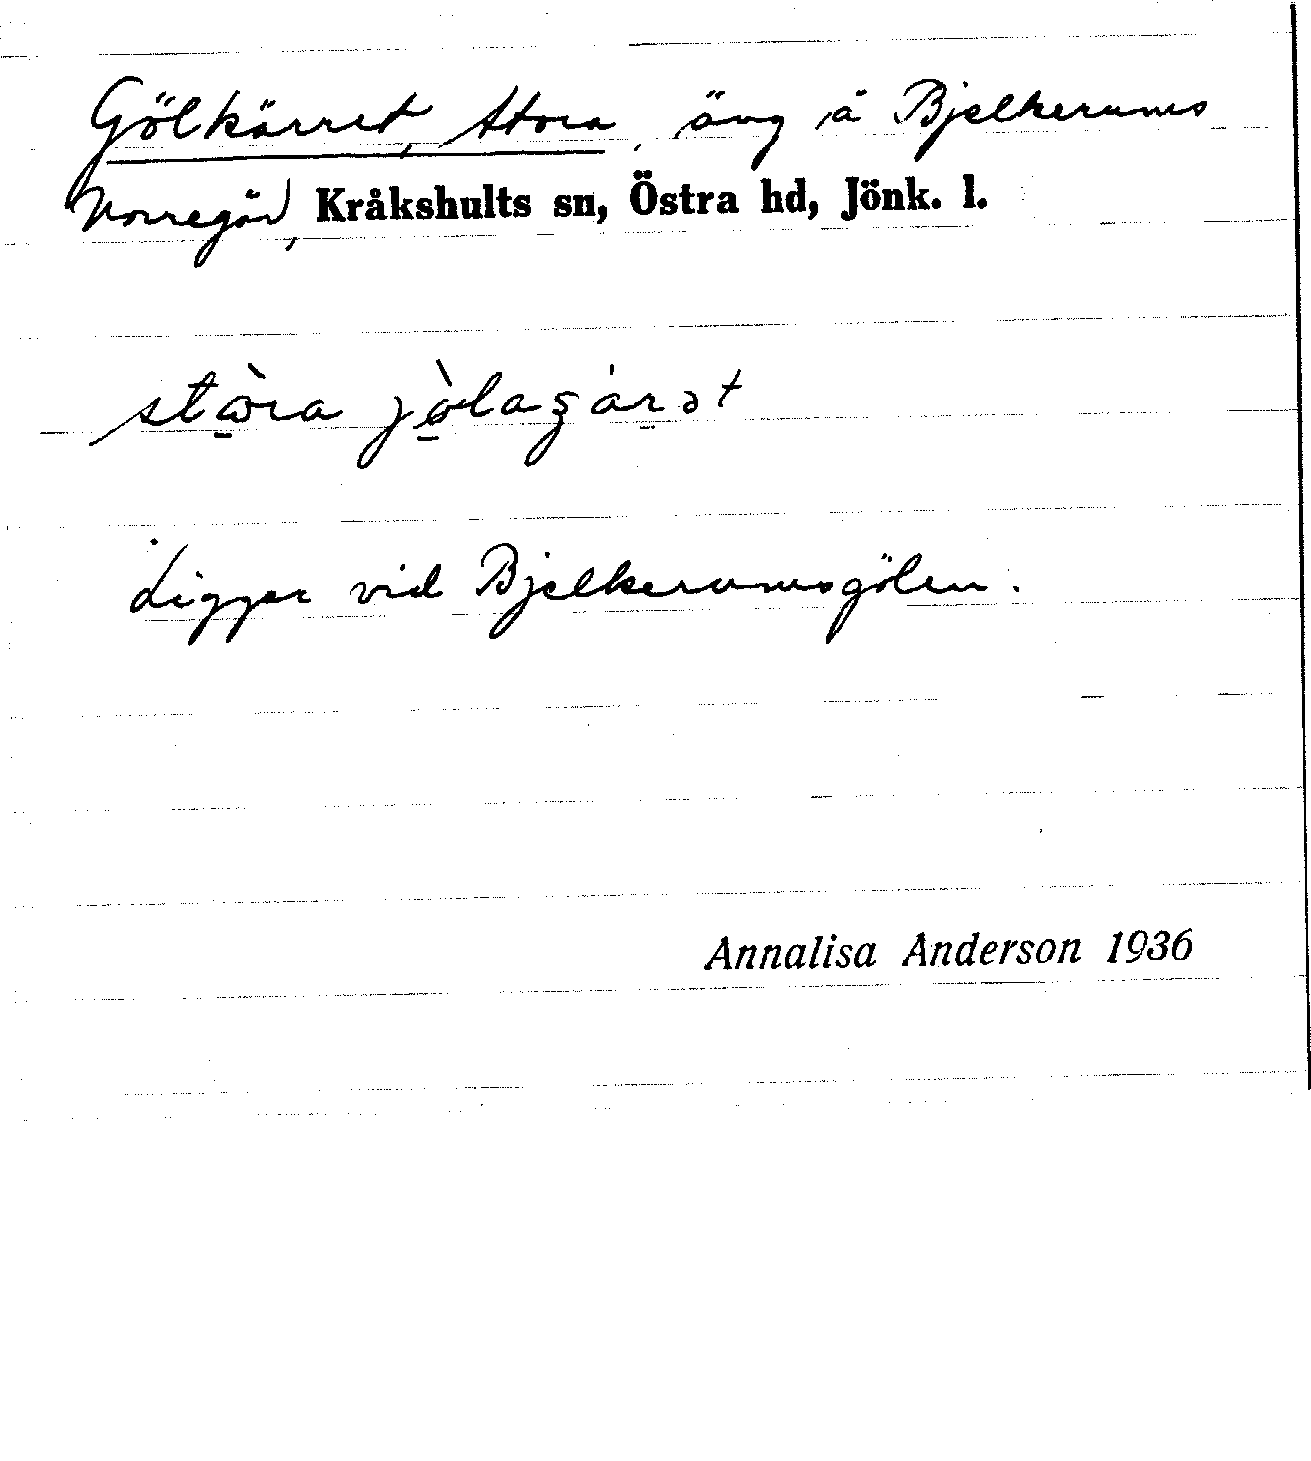 Gölkärret, Stora, äng å Bjelkerums
Norregård, Kråkshults sn, Östra hd, Jönk. l.
Ligger vid Bjelkerumsgölen.
Annalisa Anderson 1936